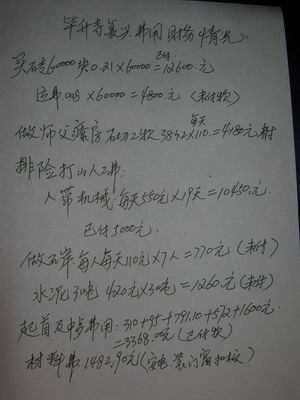 毕升寺复兴费用财务情况.
买砖60000块0.21×60000=12600.元
已付
运费0.08×60000=4800.元(未付款)
做师父寮房石砌工款38*110.=4180元
每天
排险打山人工费:
人带机械:每天550元×19天=10450.元.
已付5000元.
做石岸每人每天110元×7人=770元(未付)
水泥3吨 420元×3吨=1260.元(未付)
起首及中步费用:310+95+791.10+572+1600元
=3368.00元(已付款)
材料费1482.90元(安电 装门窗扣板)